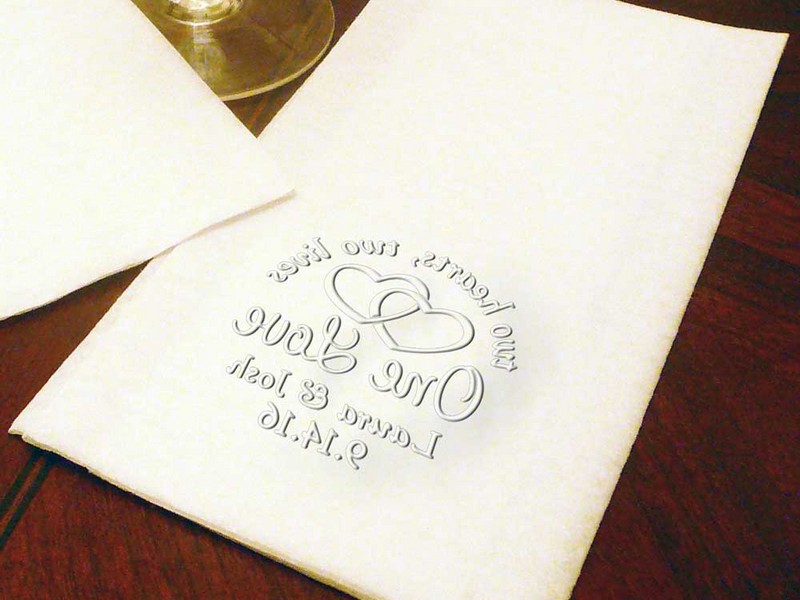 two hearts, two lives
One Love
Laura & Josh
9.14.16